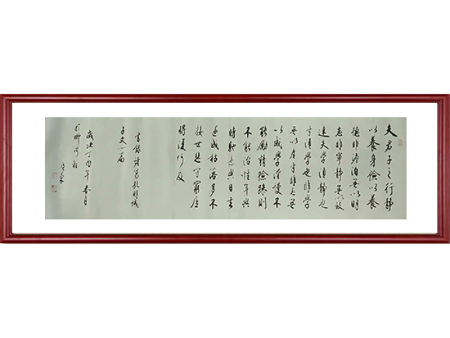 夫君子之行静
以養身儉以養
德非澹泊無以明
志非寧静無以致
遠夫學須静也
才須學也非學
無以廣才非志無
以成學
勵精險躁則
不能治性年與
時馳意與日去
遂成枯落多不
接世悲守窮廬
將復何及
書錄諸葛孔明誡
子文一篇
歲次丁 年春月